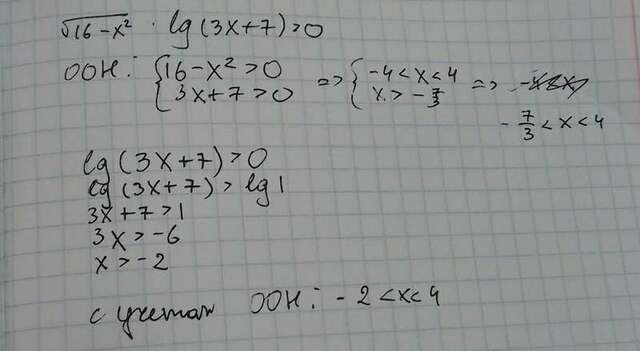 √16-x² · lg(3x+7)>0
ООН: {16-x²>0 => {-4<x<4 =>
{3x+7>0 {x>-7/3 -7/3<x<4
lg(3x+7)>0
lg(3x+7)>lg1
3x+7>1
3x>-6
x>-2
с учетом ООН: -2<x<4